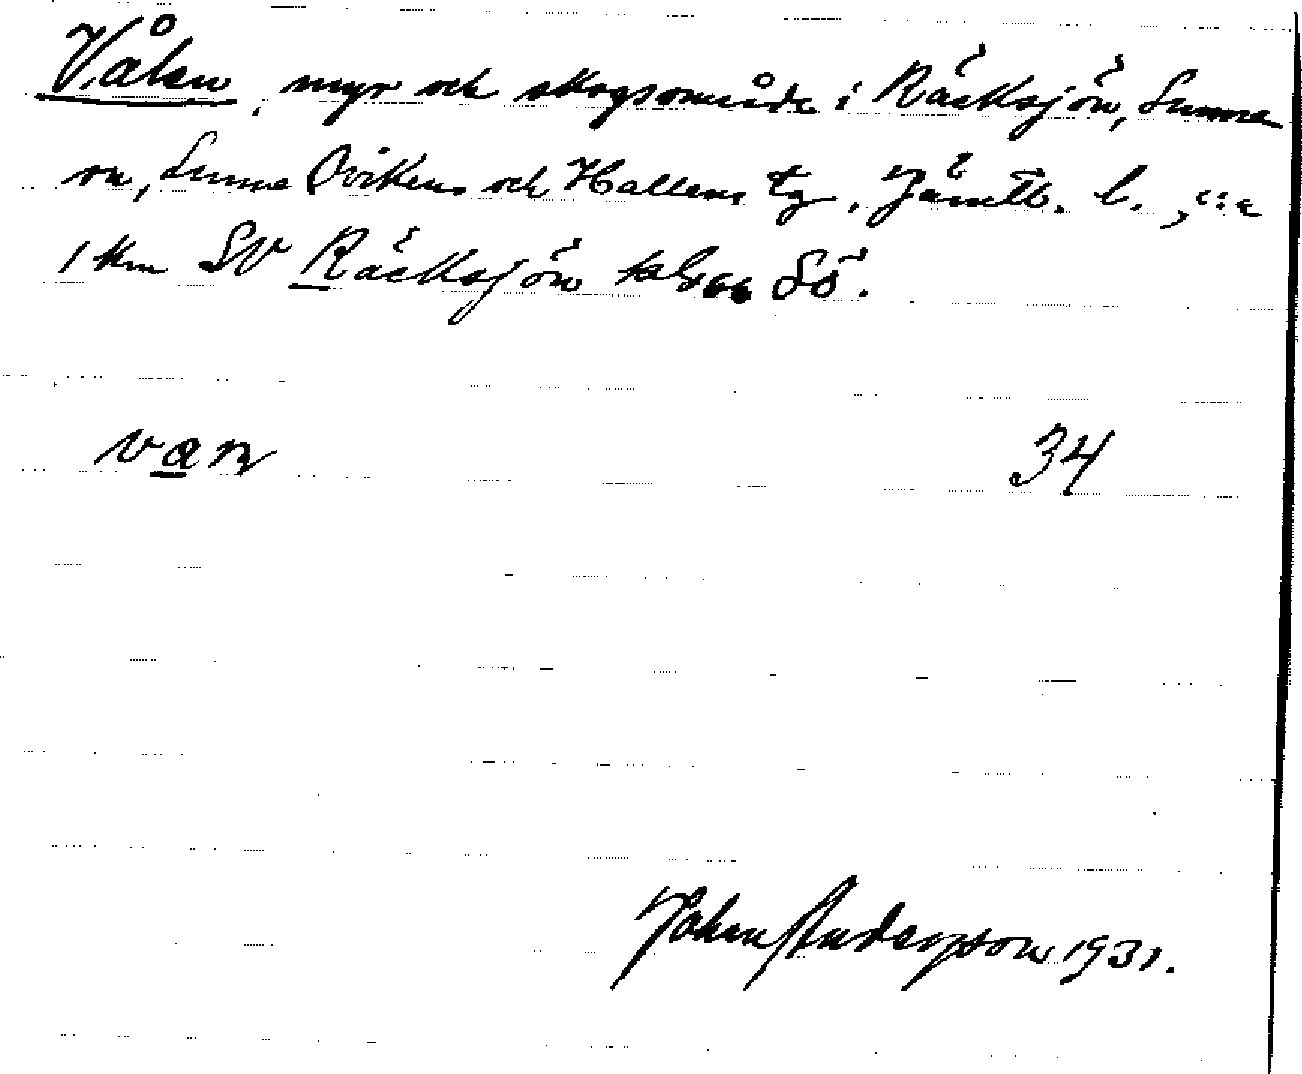 Vålen, myr och skogsområde i Räcksjön, Sunne
sn, Sunne Ovikens och Hallens tg, Jämtl. l.,
1 km SV Räcksjön 66 SÖ.
van 34
John Anderson 1931.